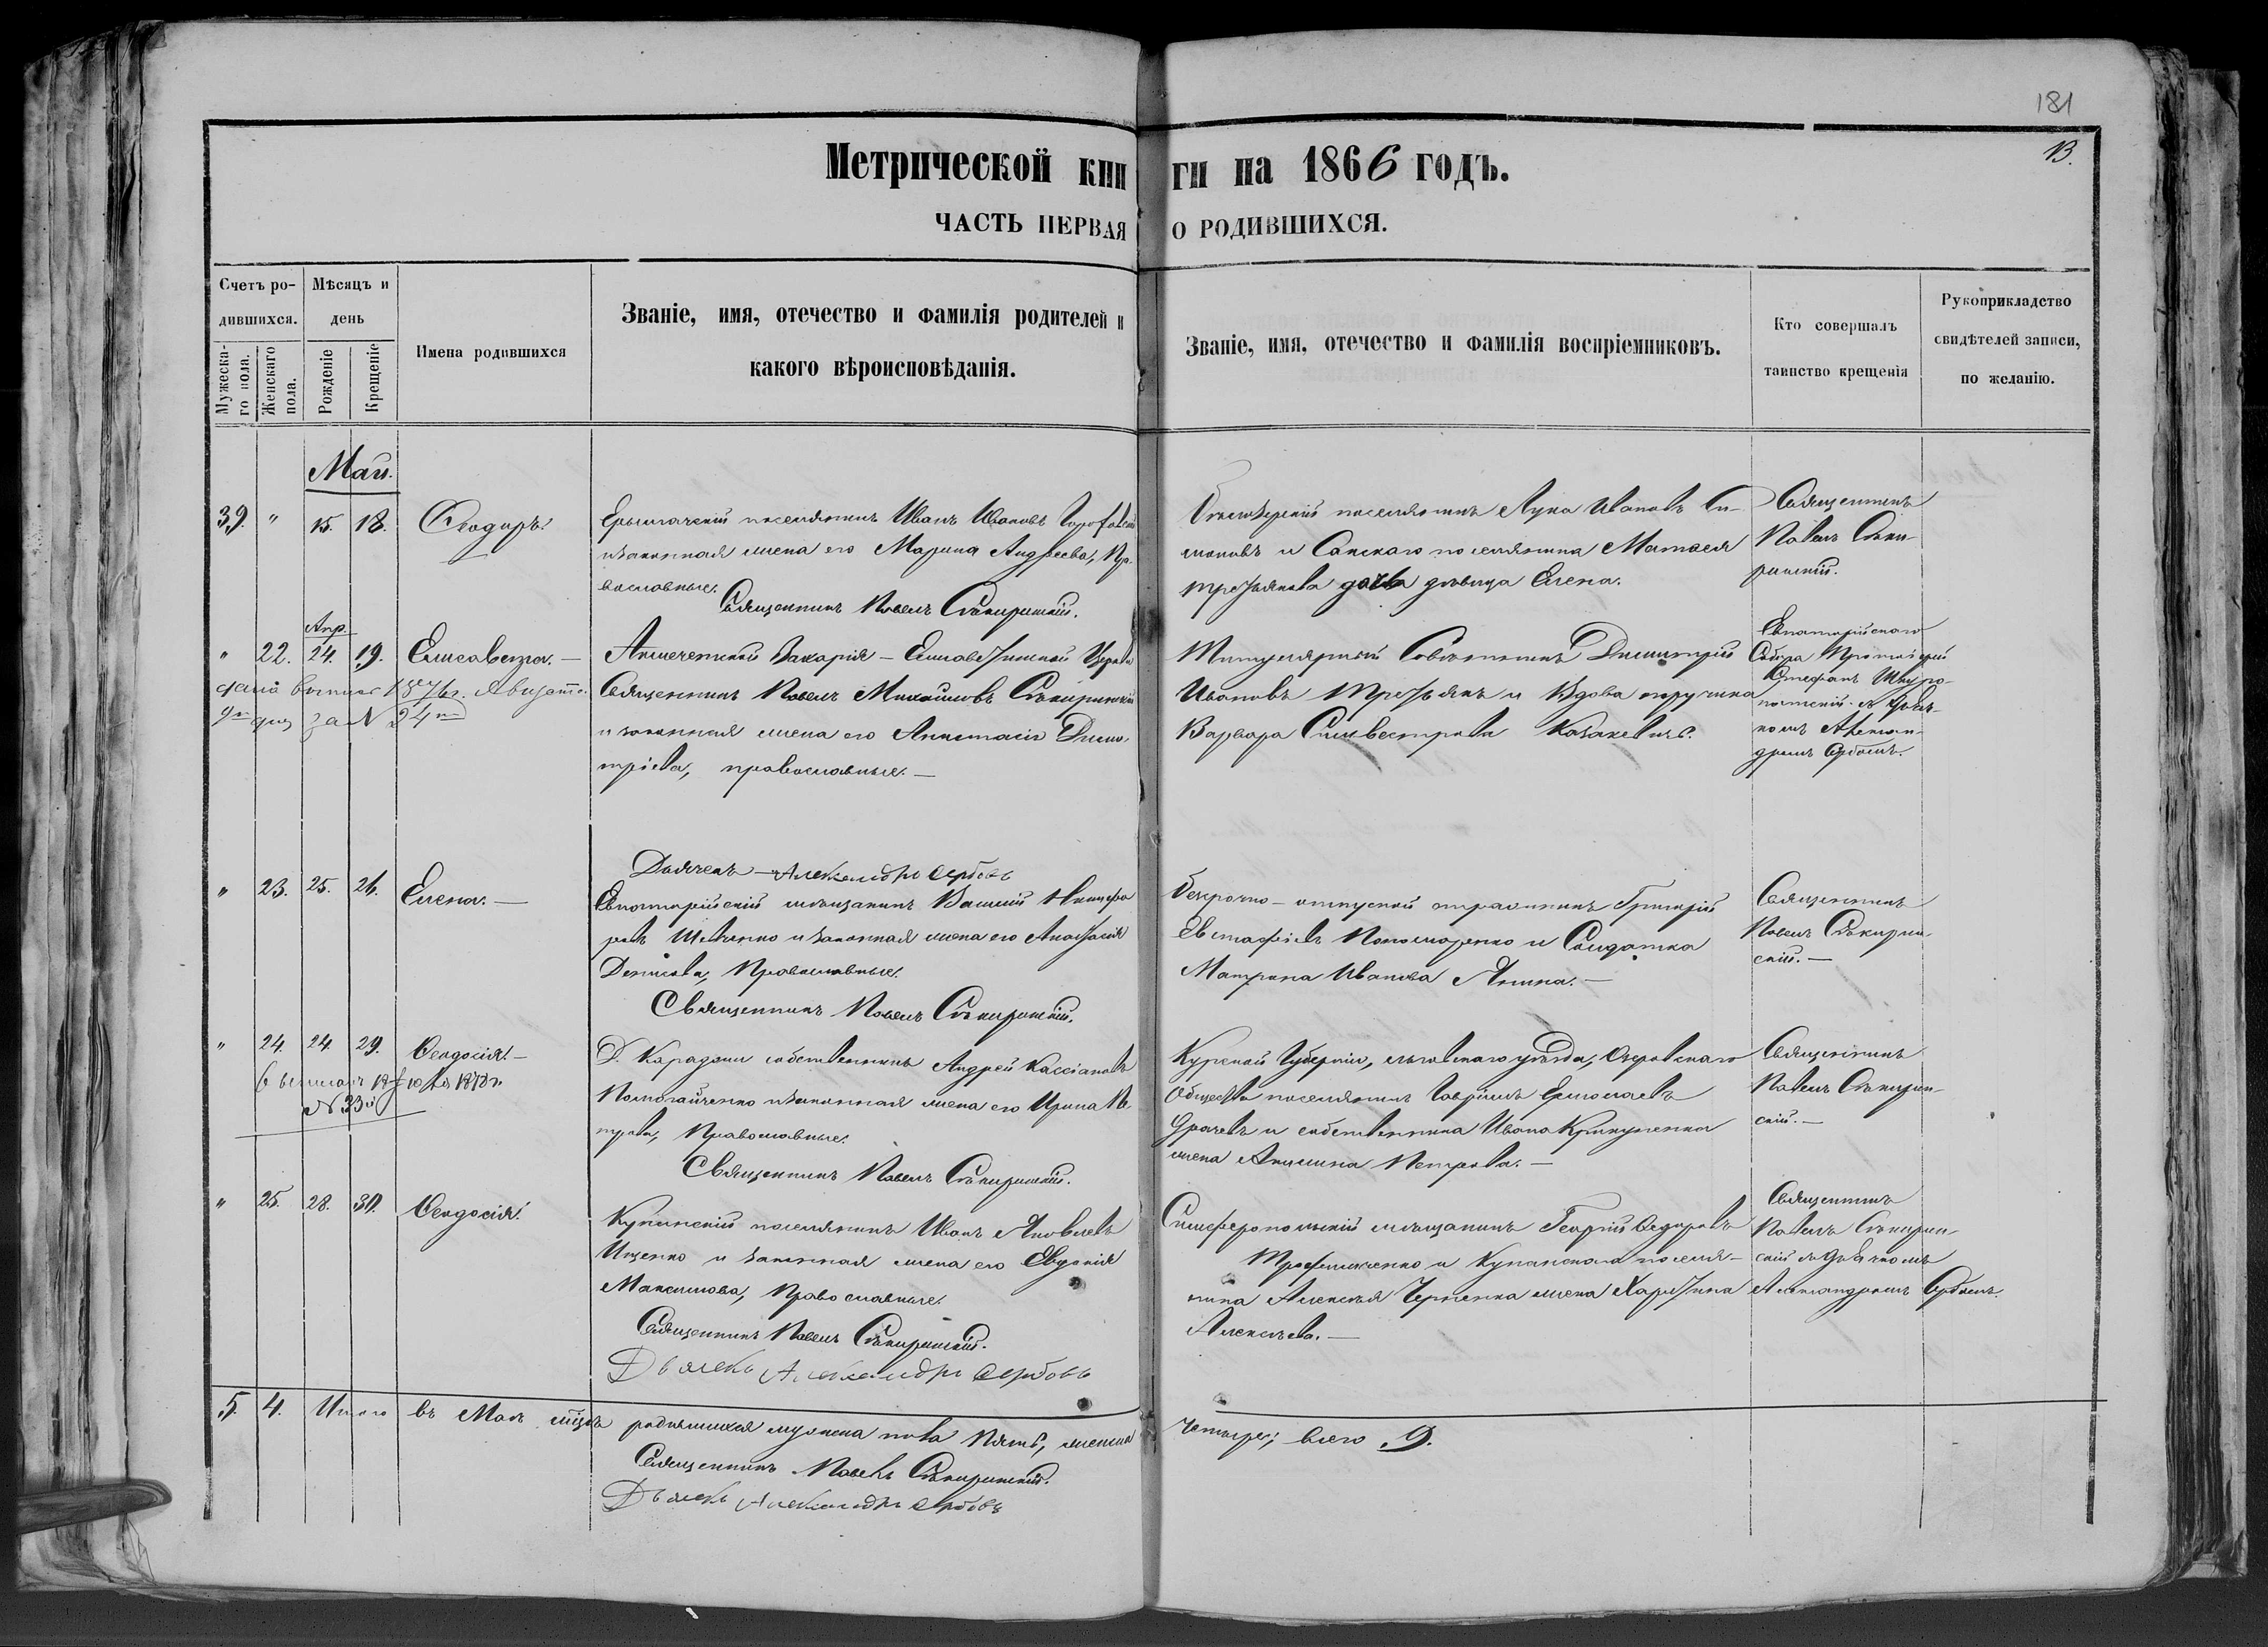 181
13.
Метрической книги на 1866 годъ.
ЧАСТЬ ПЕРВАЯ О РОДИВШИХСЯ.
Счетъ ро-
дившихся.
Мужеска-
го пола.
Женскаго
пола.
Мѣсяцъ и
день
Рожденіе
Крещеніе
Имена родившихся
Званіе, имя, отечество и фамилія родителей и
какого вѣроисповѣданія.
Званіе, имя, отечество и фамилія воспріемниковъ.
Кто совершалъ
таинство крещенія
Рукоприкладство
свидѣтелей записи,
по желанію.
Май.
39. " 15. 18. Ѳеодоръ.
поселянинъ Иванъ Ивановъ
и законная жена его Марина Андреева, Пра-
вославные.
Священникъ Павелъ Сѣкиринскій.
поселянинъ Лука Ивановъ Си-
моновъ и Сакскаго поселянина Матвея
Третьякова дочь дѣвица Елена.
Священникъ
Павелъ Сѣки-
ринскій.
Апр.
" 22. 24. 19. Елисавета. —
дана выписъ 1876 г. Августа
9го дня за N 24м
Акмечетской Захарія-Елисаветинской Церкви
Священникъ Павелъ Михайловъ Сѣкиринскій
и законная жена его Анастасія Дими-
тріева, православные. —
Дьячекъ Александръ Сербовъ
Титулярный Совѣтникъ Димитрій
Ивановъ Третьякъ и Вдова поручика
Варвара Сильвестрова Казакевичъ.
Евпаторійскаго
Собора Протоіерей
Стефанъ Шкуро-
патскій съ дьяч-
комъ Алексан-
дромъ Сербовъ.
" 23. 25. 26. Елена. —
Евпаторійскій мѣщанинъ Василій Никифо
ровъ Шевченко и законная жена его Анастасія
Денисова, Православные.
Священникъ Павелъ Сѣкиринскій.
Безсрочно-отпускной Григорій
Евстафіевъ Пономаренко и Солдатка
Матрона Иванова —
Священникъ
Павелъ Сѣкирин-
скій. —
" 24. 24. 29. Ѳеодосія. —
1878 г.
N 33й
Д. Караджи собственникъ Андрей Кассіановъ
и законная жена его Ирина Пе
трова, Православные.
Священникъ Павелъ Сѣкиринскій.
Курской Губерніи, льговскаго уѣзда,
Общества поселянинъ Гавріилъ Ермолаевъ
и собственника Ивана
жена Акилина Петрова. —
Священникъ
Павелъ Сѣкирин-
скій. —
" 25. 28. 30. Ѳеодосія.
поселянинъ Иванъ Яковлевъ
Ищенко и законная жена его Евдокія
Максимова, Православные.
Священникъ Павелъ Сѣкиринскій.
Дьячекъ Александръ Сербовъ
Симферопольскій мѣщанинъ Георгій Ѳедоровъ
и поселя-
нина Алексѣя Черненка жена Харитина
Алексѣева. —
Священникъ
Павелъ Сѣкирин-
скій съ дьячкомъ
Александромъ Сербовъ.
5. 4. Итого въ Маѣ мѣсяцѣ родившихся мужеска пола пять, женска четыре; всего 9.
Священникъ Павелъ Сѣкиринскій.
Дьячекъ Александръ Сербовъ